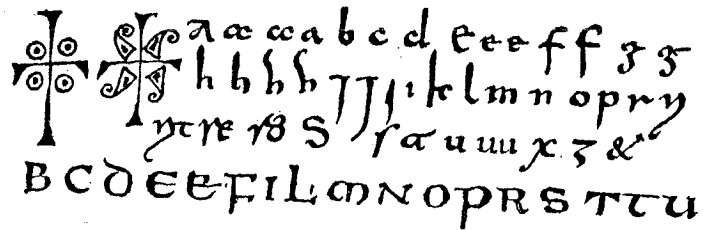 a œ cc a b c d e e e f f ʒ ʒ
h h h h J J J ı k l m n o p r y
s a u uu x ʒ &
B C D E E F I L M N O P R S T T U